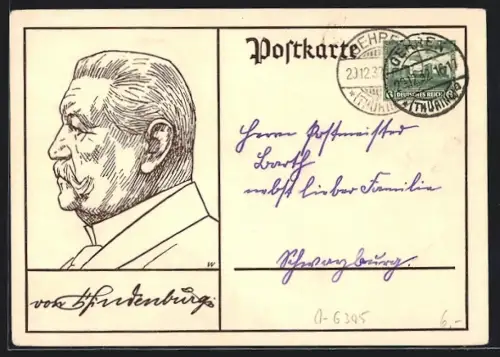 Postkarte
GEHREN
20.12.3
(THÜRING
GEHREN
(THÜRING)
DEUTSCHES REICH
Herrn Postmeister
Barth
nebst lieber Familie
Schwarzburg.
W
von Hindenburg
A-6345
6,-